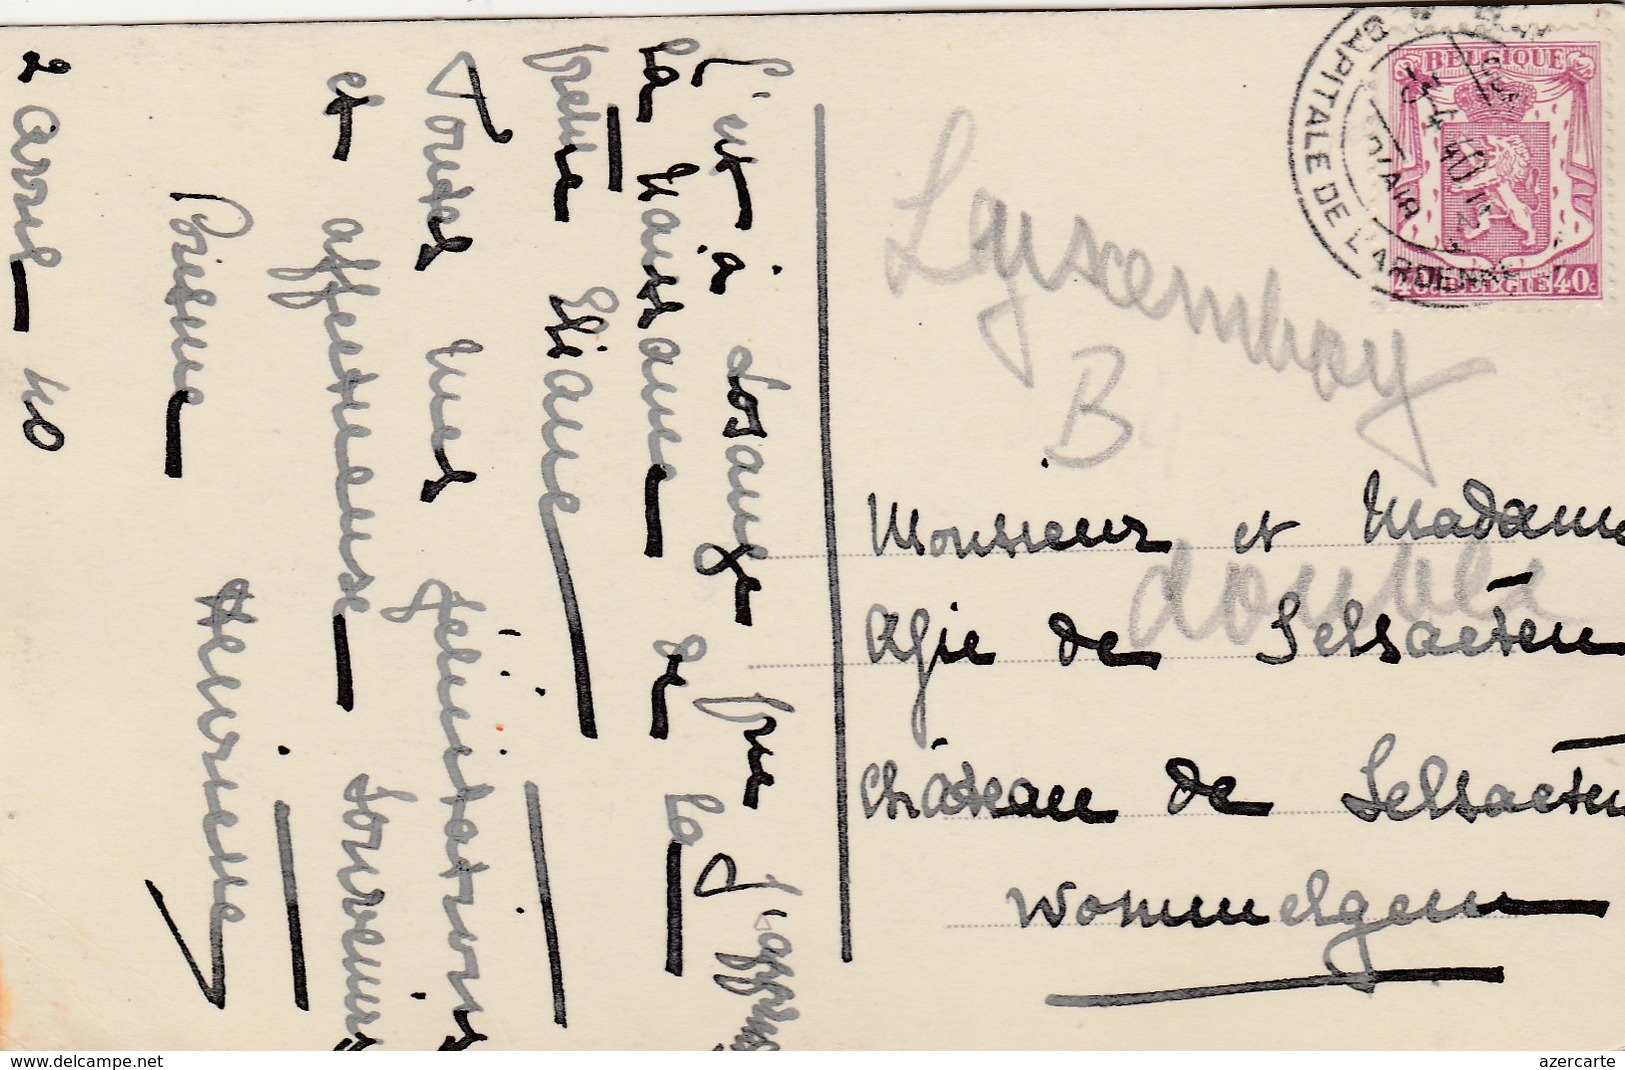 C'est à Losange que j'apprends
la naissance de la
petite Eliane
Toutes mes félicitations
et affectueuse souvenirs
Henriette
2 avril 40
BELGIQUE
40c BELGIE 40c
CAPITALE DE L'ARDENNE
Luxembourg
B
double
Monsieur et Madame
Agie de Selsaeten
Château de Selsaeten
Wommelgem
www.delcampe.net
azercarte